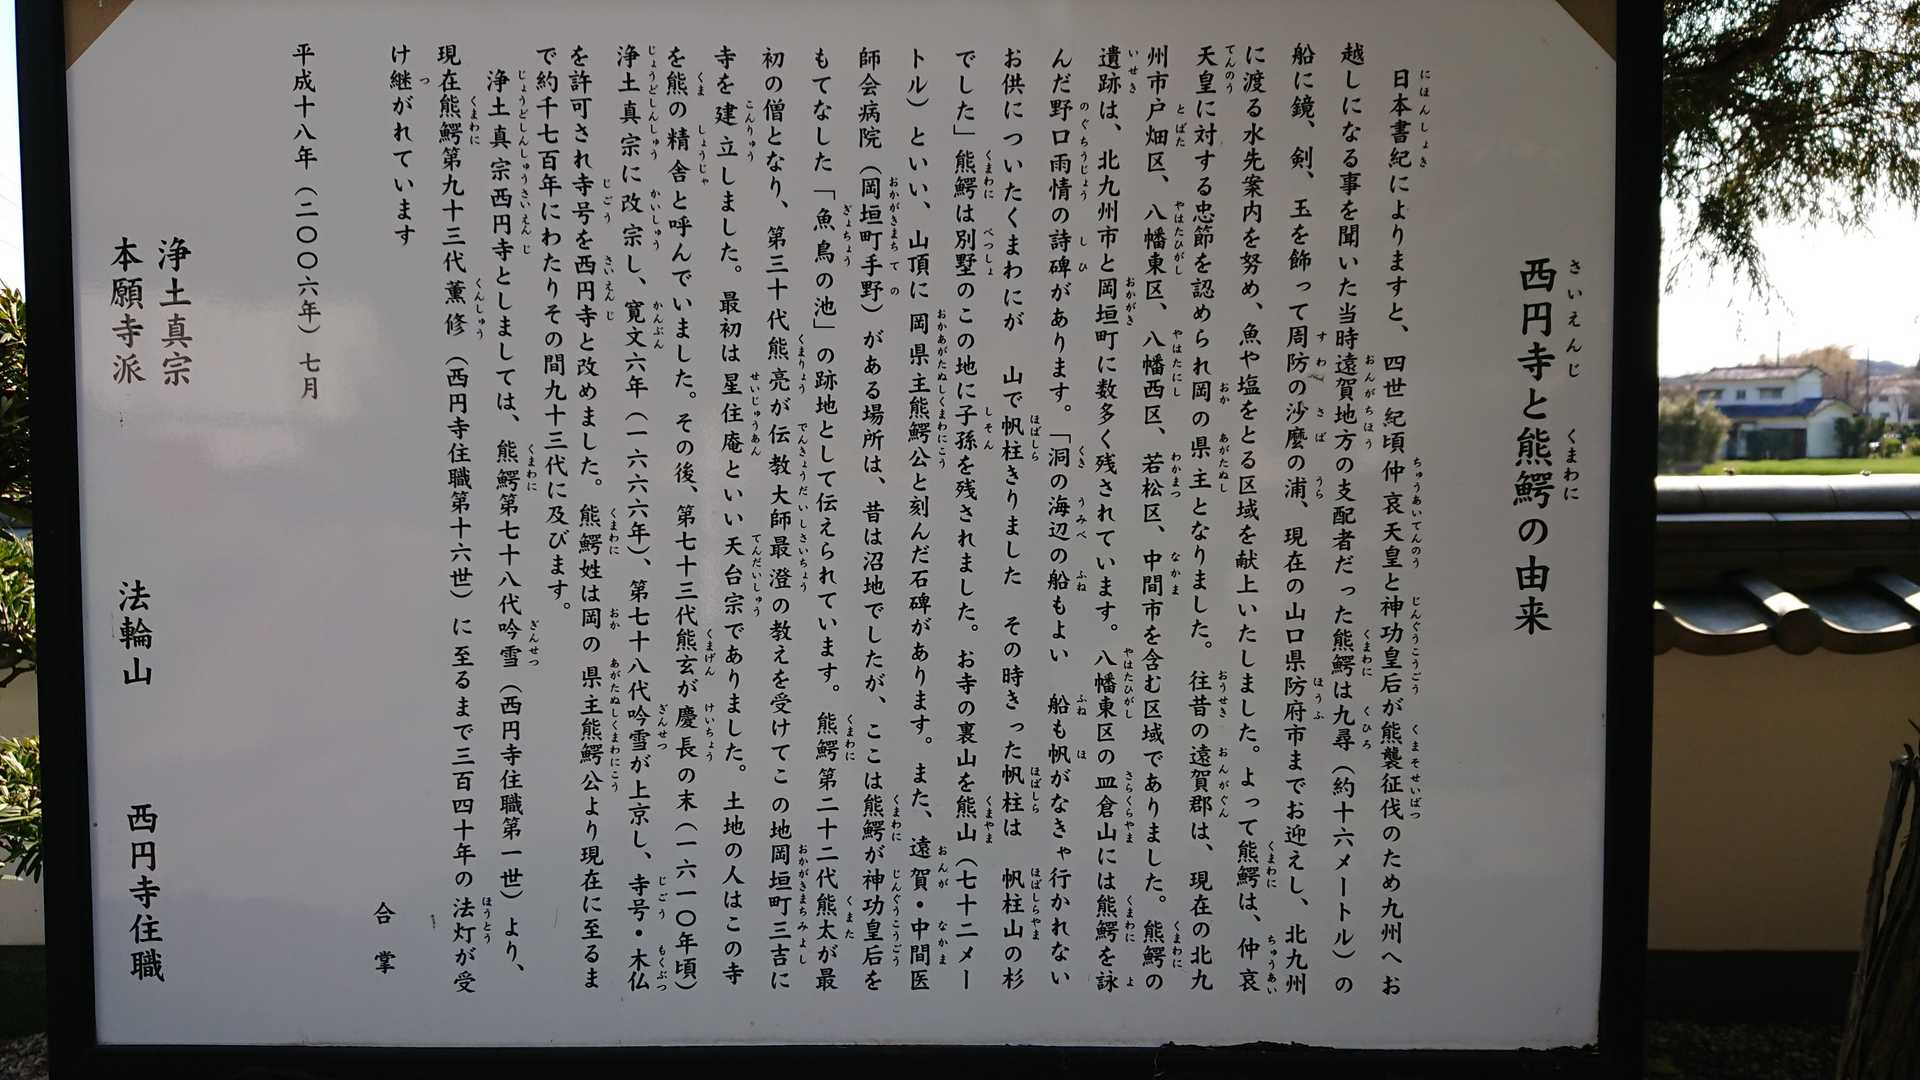 西円寺と熊鰐の由来
日本書紀によりますと、四世紀頃仲哀天皇と神功皇后が熊襲征伐のため九州へお
越しになる事を聞いた当時遠賀地方の支配者だった熊鰐は九尋（約十六メートル）の
船に鏡、剣、玉を飾って周防の沙麼の浦、現在の山口県防府市までお迎えし、北九州
に渡る水先案内を努め、魚や塩をとる区域を献上いたしました。よって熊鰐は、仲哀
天皇に対する忠節を認められ岡の県主となりました。往昔の遠賀郡は、現在の北九
州市戸畑区、八幡東区、八幡西区、若松区、中間市を含む区域でありました。熊鰐の
遺跡は、北九州市と岡垣町に数多く残されています。八幡東区の皿倉山には熊鰐を詠
んだ野口雨情の詩碑があります。「洞の海辺の船もよい　船も帆がなきゃ行かれない
お供についたくまわにが　山で帆柱きりました　その時きった帆柱は　帆柱山の杉
でした」熊鰐は別墅のこの地に子孫を残されました。お寺の裏山を熊山（七十二メー
トル）といい、山頂に岡県主熊鰐公と刻んだ石碑があります。また、遠賀・中間医
師会病院（岡垣町手野）がある場所は、昔は沼地でしたが、ここは熊鰐が神功皇后を
もてなした「魚鳥の池」の跡地として伝えられています。熊鰐第二十二代熊太が最
初の僧となり、第三十代熊亮が伝教大師最澄の教えを受けてこの地岡垣町三吉に
寺を建立しました。最初は星住庵といい天台宗でありました。土地の人はこの寺
を熊の精舎と呼んでいました。その後、第七十三代熊玄が慶長の末（一六一〇年頃）
浄土真宗に改宗し、寛文六年（一六六六年）、第七十八代吟雪が上京し、寺号・木仏
を許可され寺号を西円寺と改めました。熊鰐姓は岡の県主熊鰐公より現在に至るま
で約千七百年にわたりその間九十三代に及びます。
浄土真宗西円寺としましては、熊鰐第七十八代吟雪（西円寺住職第一世）より、
現在熊鰐第九十三代薫修（西円寺住職第十六世）に至るまで三百四十年の法灯が受
け継がれています
合掌
平成十八年（二〇〇六年）七月
浄土真宗
本願寺派　法輪山　西円寺住職